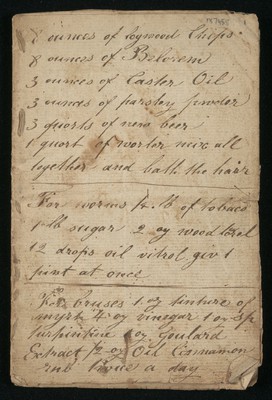 8 ounces of Logwood Chips
8 ounces of Bolorem
3 ounces of Caster Oil
3 ounces of parsley powder
3 quarts of new beer
1 quart of worter mix all
together and bath the hair
For worms 1/4 lb of tobaco
1 lb sugar 2 oz wood
12 drops oil vitrol give 1
pint at once
For bruses 1 oz tinture of
myrh 4 oz vinegar 1 oz sp
turpintine 1 oz Goulard
Extract 1/2 oz Oil Cinnamon
rub twice a day